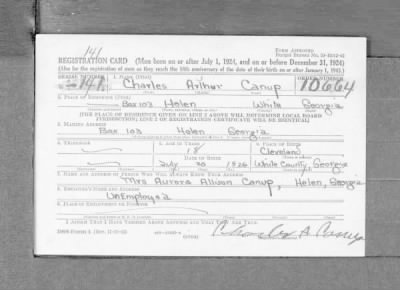 141
REGISTRATION CARD (Men born on or after July 1, 1924, and on or before December 31, 1924)
(Also for the registration of men as they reach the 18th anniversary of the date of their birth on or after January 1, 1943.)
FORM APPROVED
SERIAL NUMBER 1. NAME (Print) ORDER NUMBER
141 Charles Arthur Canup 10664
2. PLACE OF RESIDENCE (Print)
Box 103 Helen White Georgia
[THE PLACE OF RESIDENCE GIVEN ON LINE 2 ABOVE WILL DETERMINE LOCAL BOARD
JURISDICTION; LINE 2 OF REGISTRATION CERTIFICATE WILL BE IDENTICAL]
3. MAILING ADDRESS
Box 103 Helen Georgia
4. TELEPHONE 5. AGE IN YEARS 6. PLACE OF BIRTH
18 Cleveland
DATE OF BIRTH
July 30 1926 White County, Georgia
7. NAME AND ADDRESS OF PERSON WHO WILL ALWAYS KNOW YOUR ADDRESS
Mrs Aurora Allison Canup, Helen, Georgia
8. EMPLOYER'S NAME AND ADDRESS
UnEmployed
9. PLACE OF EMPLOYMENT OR BUSINESS
I AFFIRM THAT I HAVE VERIFIED ABOVE ANSWERS AND THAT THEY ARE TRUE.
Charles A Canup